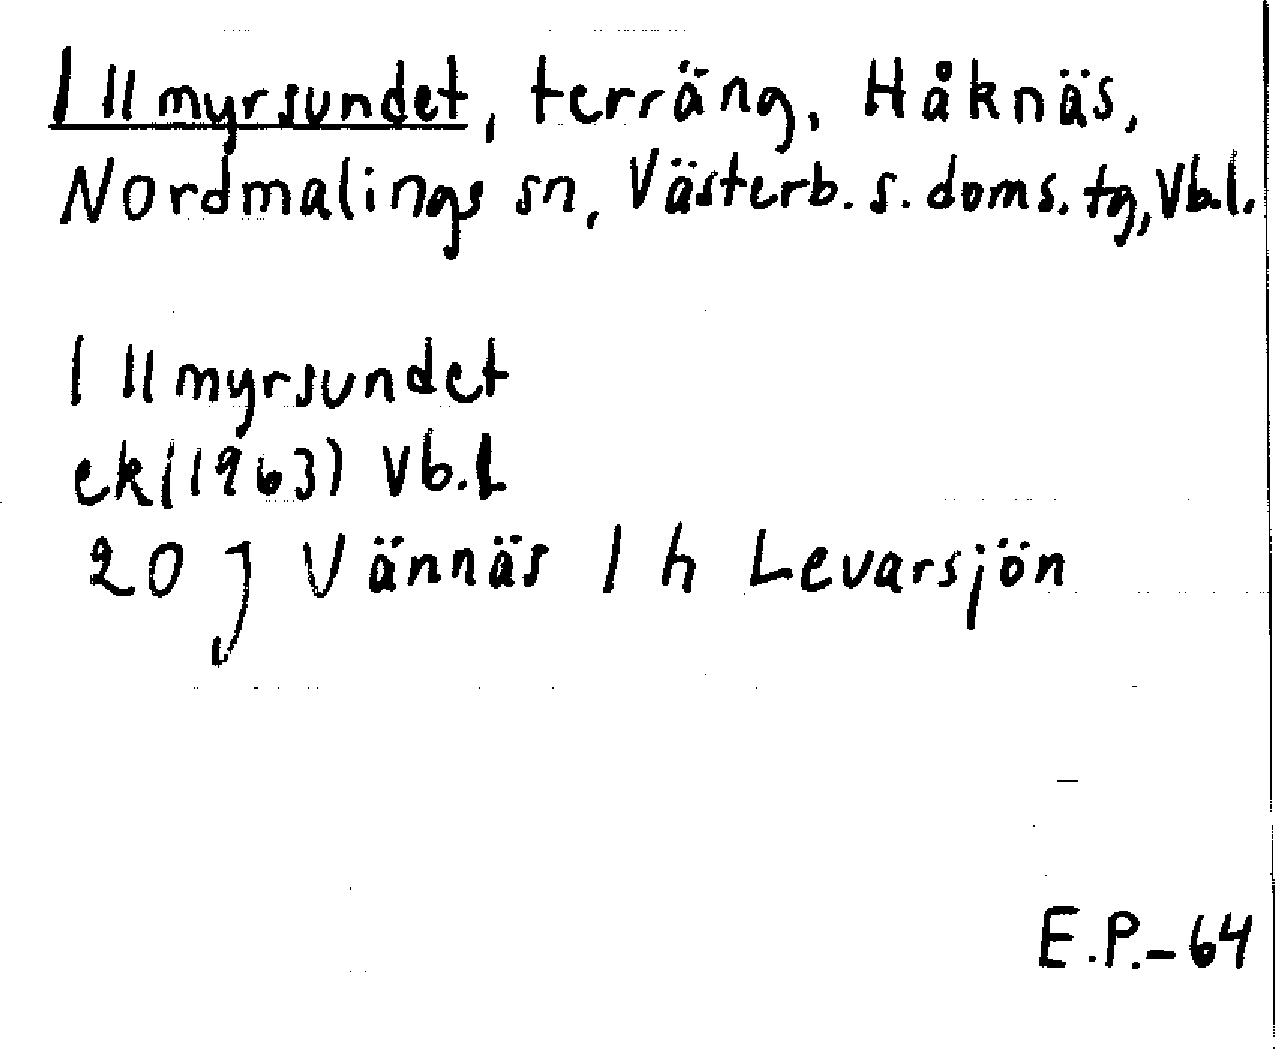 Illmyrsundet, terräng, Håknäs,
Nordmalings sn, Västerb. s. doms. tg, Vb.l.
Illmyrsundet
ek(1963) Vb.L
20 J Vännäs 1 h Levarsjön
E.P.-64